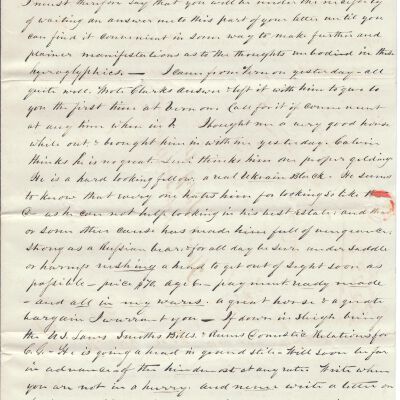 I must therefore say that you will be under the necessity
of waiting an answer unto this part of your letter until you
can find it convenient in some way to make further and
plainer manifestations as to the thoughts embodied in these
hyroglyphics — I came from Vernon yesterday - all
quite well. Wrote Clarks answer & left it with him to give to
you the first time at Vernon Call for it if convenient
at any time when in V. Thought me a very good horse
while out & brought him in with me yesterday. Calvin
thinks he is no great - Levi thinks him our proper gelding
He is a hard looking fellow a real Black. He seems
to know that every one hates him for looking so like the
as he can not help looking in his best estate, and that
or some other cause has made him full of vengeance.
Strong as a Russian bear & for all day be sure under saddle
or harness rushing ahead to get out of sight soon as
possible - price age 6 - payment ready made
- and all in my wares. a great horse & a great
bargain I warrant you — If down in sleigh bring
the U.S. Laws Smiths Bills & Domestic Relations for
C.G. - He is going ahead in grand stile - Will soon be far
in advance of the hindmost at any rate. Write when
you are not in a hurry, and never write a letter on